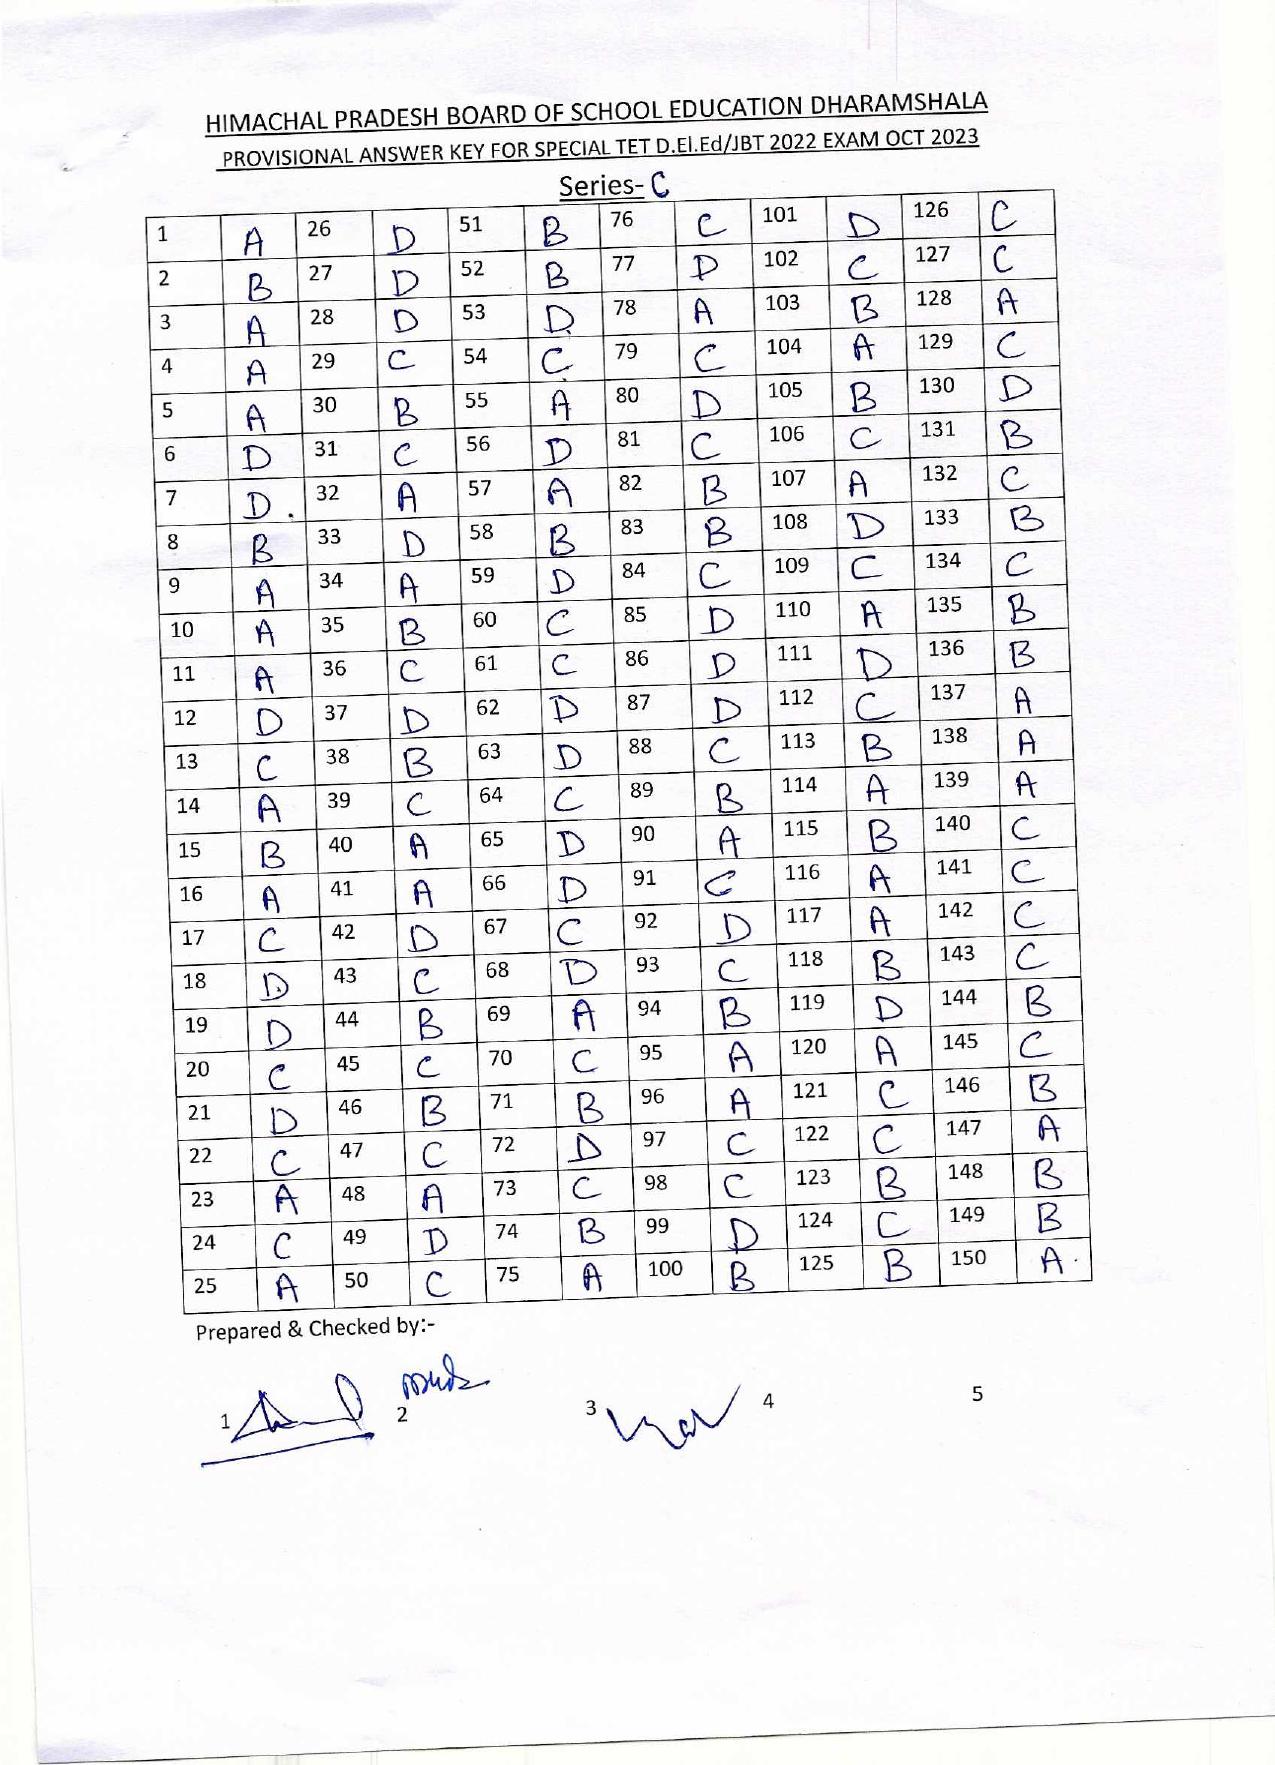 HIMACHAL PRADESH BOARD OF SCHOOL EDUCATION DHARAMSHALA
PROVISIONAL ANSWER KEY FOR SPECIAL TET D.El.Ed/JBT 2022 EXAM OCT 2023
Series- C
1 A 26 D 51 B 76 C 101 D 126 C
2 B 27 D 52 B 77 D 102 C 127 C
3 A 28 D 53 D 78 A 103 B 128 A
4 A 29 C 54 C 79 C 104 A 129 C
5 A 30 B 55 A 80 D 105 B 130 D
6 D 31 C 56 D 81 C 106 C 131 B
7 D . 32 A 57 A 82 B 107 A 132 C
8 B 33 D 58 B 83 B 108 D 133 B
9 A 34 A 59 D 84 C 109 C 134 C
10 A 35 B 60 C 85 D 110 A 135 B
11 A 36 C 61 C 86 D 111 D 136 B
12 D 37 D 62 D 87 D 112 C 137 A
13 C 38 B 63 D 88 C 113 B 138 A
14 A 39 C 64 C 89 B 114 A 139 A
15 B 40 A 65 D 90 A 115 B 140 C
16 A 41 A 66 D 91 C 116 A 141 C
17 C 42 D 67 C 92 D 117 A 142 C
18 D 43 C 68 D 93 C 118 B 143 C
19 D 44 B 69 A 94 B 119 D 144 B
20 C 45 C 70 C 95 A 120 A 145 C
21 D 46 B 71 B 96 A 121 C 146 B
22 C 47 C 72 D 97 C 122 C 147 A
23 A 48 A 73 C 98 C 123 B 148 B
24 C 49 D 74 B 99 D 124 C 149 B
25 A 50 C 75 A 100 B 125 B 150 A .
Prepared & Checked by:-
1 2 3 4 5